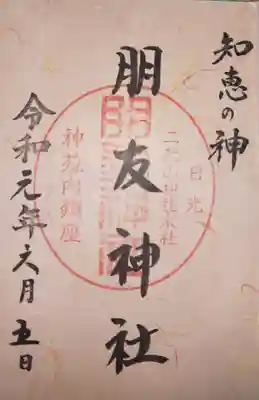 知恵の神
朋友神社
令和元年六月五日
日光
二荒山神社本社
神苑内鎮座